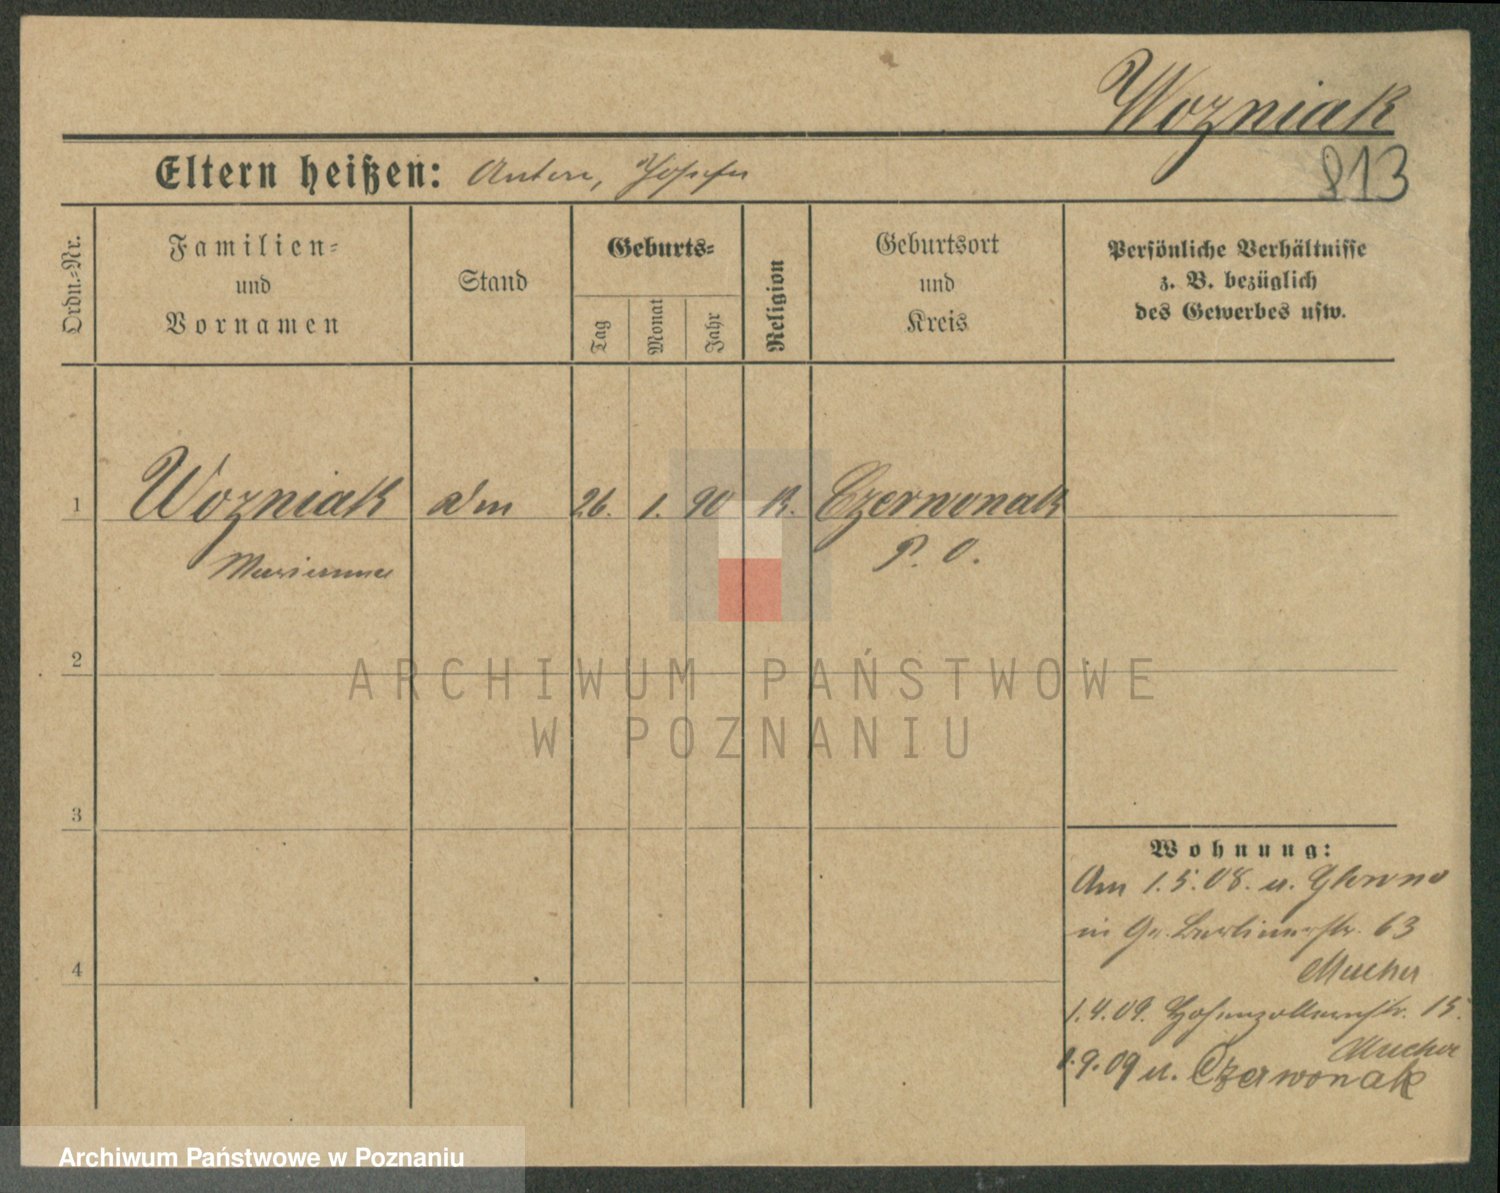 Wozniak
813
Eltern heißen: Anton, Josefa
Ordn.-Nr.
Familien-
und
Vornamen
Stand
Geburts-
Tag
Monat
Jahr
Religion
Geburtsort
und
Kreis
Persönliche Verhältnisse
z. B. bezüglich
des Gewerbes usw.
1 Wozniak 26. 1. 90 K. Czerwonak
Marianna P. O.
2
3
4
Wohnung:
Am 1.5.08. v. Glowno
in Gr. Berlinerstr. 63
1.4.09. Hohenzollernstr. 15.
1.9.09 n. Czerwonak
ARCHIWUM PAŃSTWOWE
W POZNANIU
Archiwum Państwowe w Poznaniu